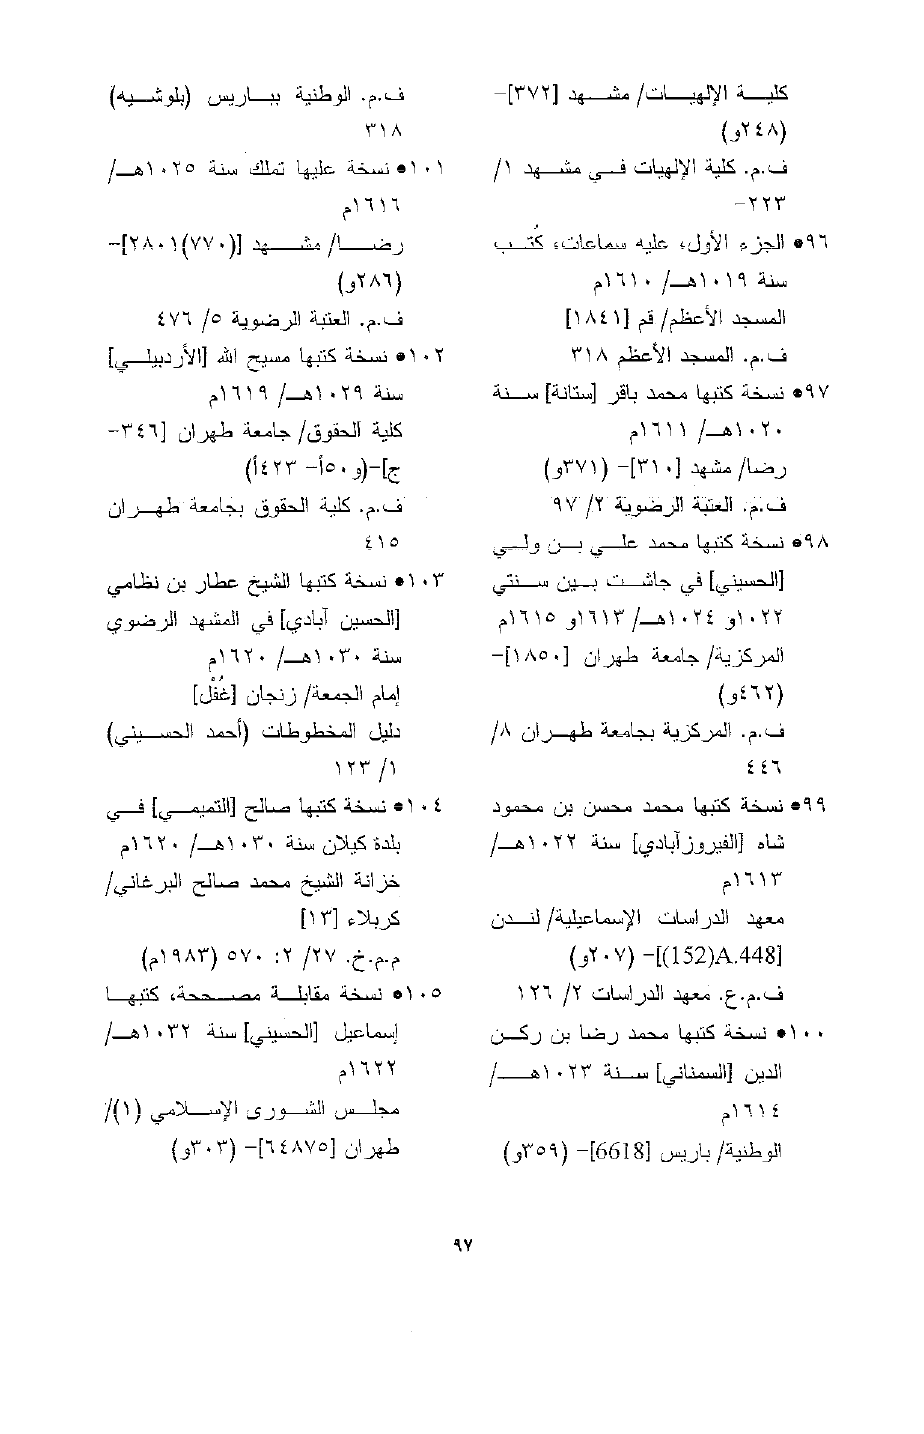 كليـــة الإلهيـــات/ مشـــهد [٣٧٢]-
(٢٤٨و)
ف.م. كلية الإلهيات فـي مشـهد ١/
٢٢٣-
٩٦• الجزء الأول، عليه سماعات، كُتـب
سنة ١٠١٩هـ/ ١٦١٠م
المسجد الأعظم/ قم [١٨٤١]
ف.م. المسجد الأعظم ٣١٨
٩٧• نسخة كتبها محمد باقر [ستانة] سـنة
١٠٢٠هـ/ ١٦١١م
رضا/ مشهد [٣١٠]- (٣٧١و)
ف.م. العتبة الرضوية ٢/ ٩٧
٩٨• نسخة كتبها محمد علـي بـن ولـي
[الحسيني] في جاشـت بـين سـنتي
١٠٢٢و ١٠٢٤هـ/ ١٦١٣و ١٦١٥م
المركزية/ جامعة طهران [١٨٥٠]-
(٤٦٢و)
ف.م. المركزية بجامعة طهـران ٨/
٤٤٦
٩٩• نسخة كتبها محمد محسن بن محمود
شاه [الفيروزآبادي] سنة ١٠٢٢هـ/
١٦١٣م
معهد الدراسات الإسماعيلية/ لنـدن
[A.448(152)]- (٢٠٧و)
ف.م.ع. معهد الدراسات ٢/ ١٢٦
١٠٠• نسخة كتبها محمد رضا بن ركـن
الدين [السمناني] سـنة ١٠٢٣هـــ/
١٦١٤م
الوطنية/ باريس [6618]- (٣٥٩و)
ف.م. الوطنية ببـاريس (بلوشـيه)
٣١٨
١٠١• نسخة عليها تملك سنة ١٠٢٥هـ/
١٦١٦م
رضـــا/ مشـــهد [(٧٧٠)٢٨٠١]-
(٢٨٦و)
ف.م. العتبة الرضوية ٥/ ٤٧٦
١٠٢• نسخة كتبها مسيح الله [الأردبيلـي]
سنة ١٠٢٩هـ/ ١٦١٩م
كلية الحقوق/ جامعة طهران [٣٤٦-
ج]-(و٥٠أ- ٤٢٣أ)
ف.م. كلية الحقوق بجامعة طهـران
٤١٥
١٠٣• نسخة كتبها الشيخ عطار بن نظامي
[الحسين آبادي] في المشهد الرضوي
سنة ١٠٣٠هـ/ ١٦٢٠م
إمام الجمعة/ زنجان [غُفْل]
دليل المخطوطات (أحمد الحسـيني)
١/ ١٢٣
١٠٤• نسخة كتبها صالح [التميمـي] فـي
بلدة كيلان سنة ١٠٣٠هـ/ ١٦٢٠م
خزانة الشيخ محمد صالح البرغاني/
كربلاء [١٣]
م.م.خ. ٢٧/ ٢: ٥٧٠ (١٩٨٣م)
١٠٥• نسخة مقابلـة مصـححة، كتبهـا
إسماعيل [الحسيني] سنة ١٠٣٢هـ/
١٦٢٢م
مجلـس الشـورى الإسـلامي (١)/
طهران [٦٤٨٧٥]- (٣٠٣و)
٩٧